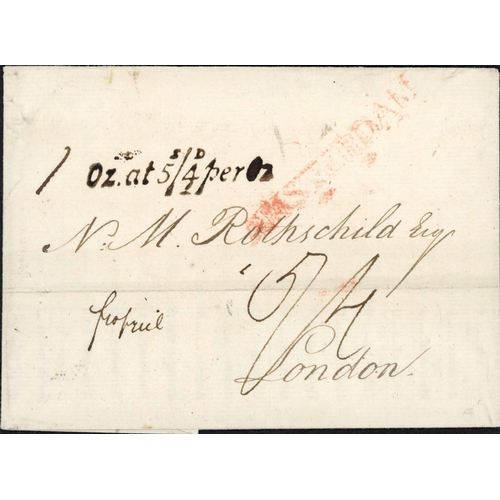 AMSTERDAM
1
Oz. at 5/4 per Oz
S D
N. M. Rothschild Esq
5/4
London.